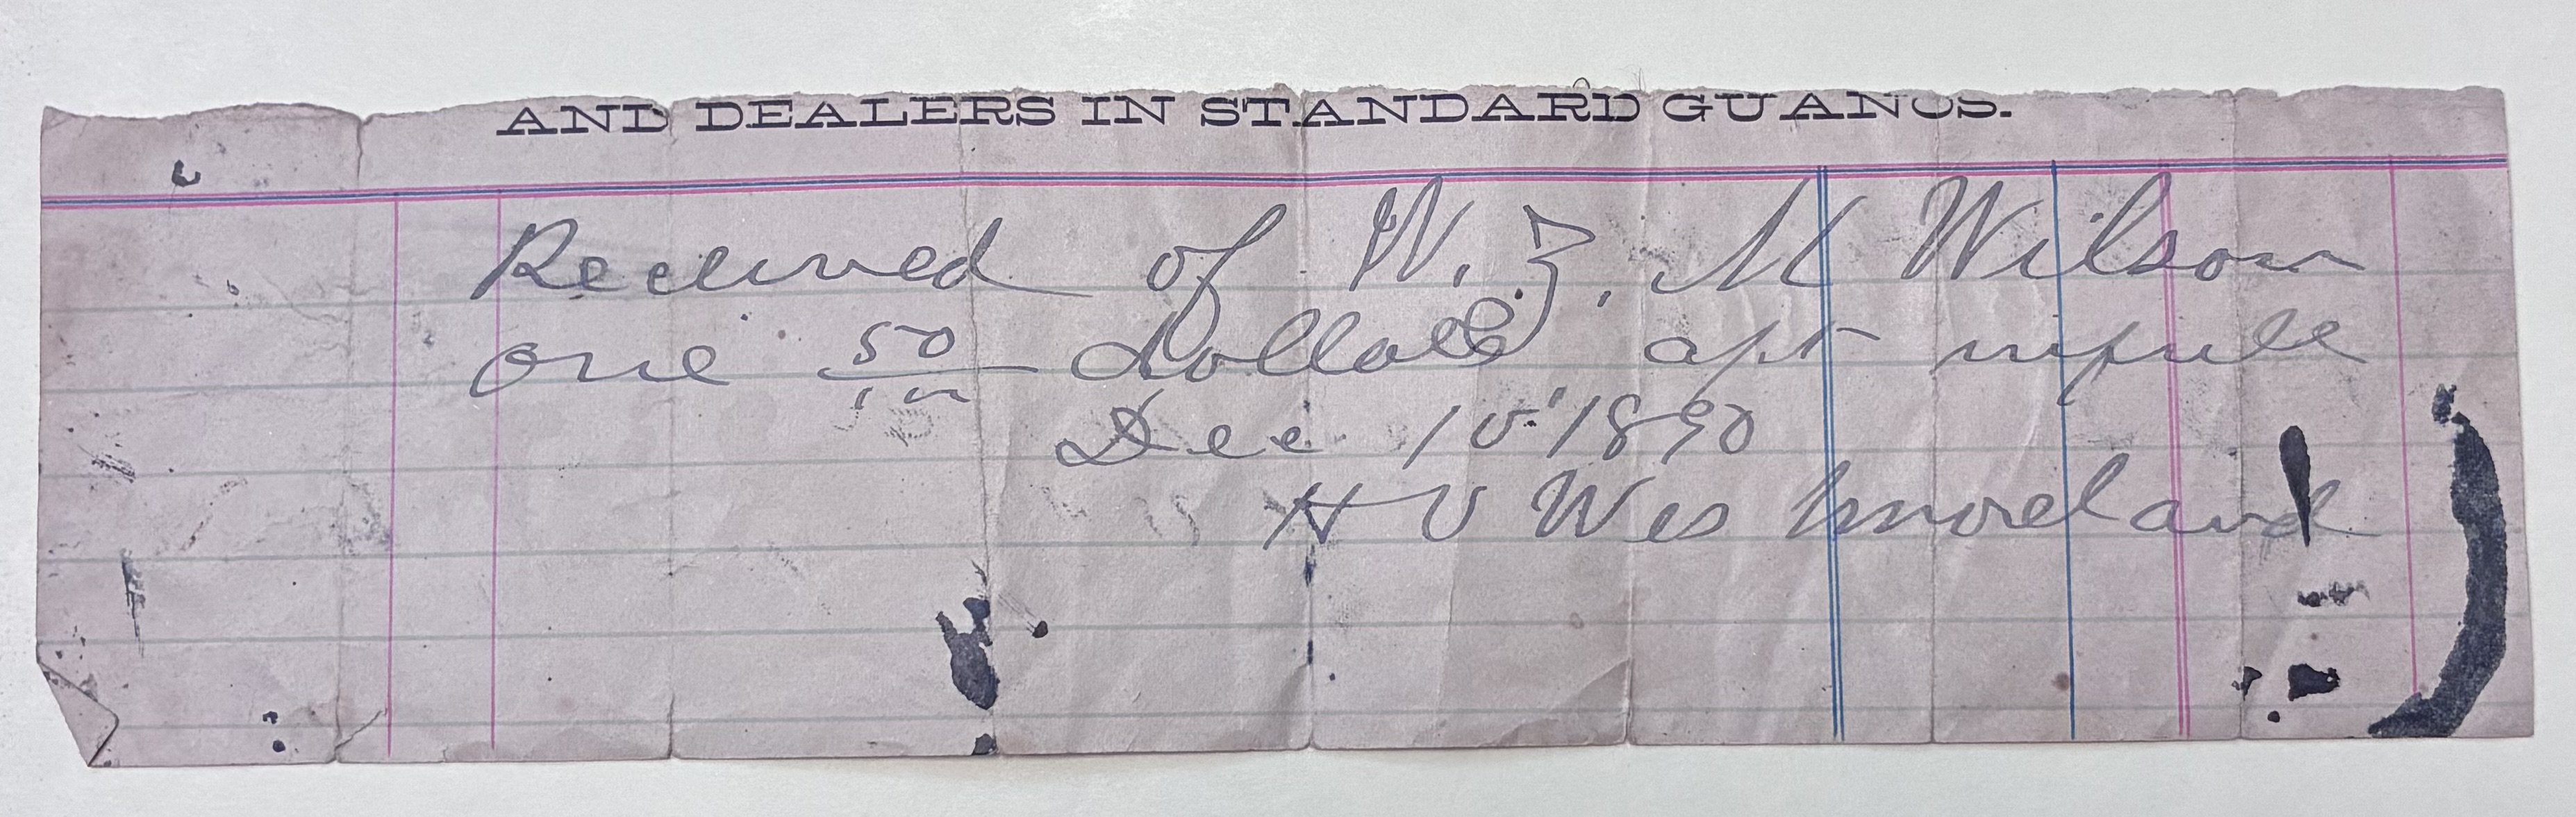 AND DEALERS IN STANDARD GUANOS.
Received of W. Z. M Wilson
one 50/100 dollars
Dec 10 1890
H V Westmoreland